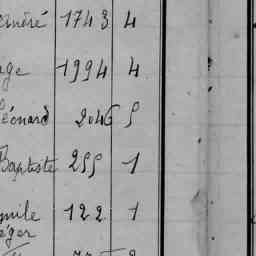 André 1743 4
age 1994 4
Léonard 2046 5
Baptiste 255 1
mile 122 1
éger